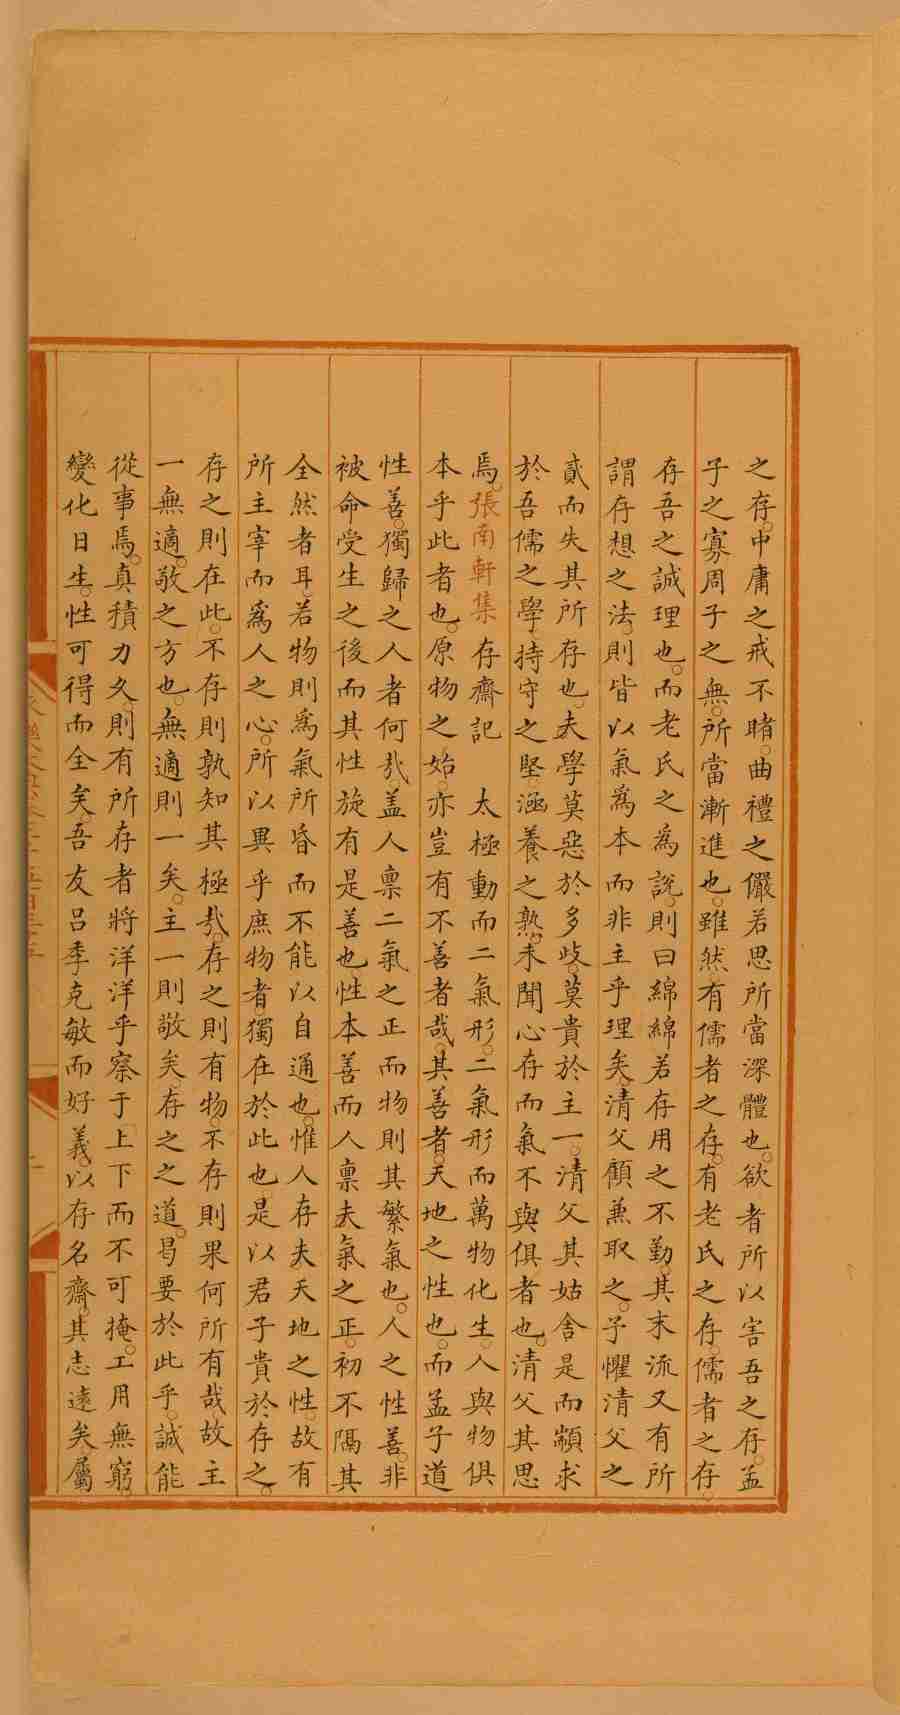 之存。中庸之戒不睹。曲禮之儼若思所當深體也。欲者所以害吾之存。孟
子之寡周子之無。所當漸進也。雖然。有儒者之存。有老氏之存。儒者之存。
存吾之誠理也。而老氏之為說。則曰綿綿若存用之不勤。其末流又有所
謂存想之法。則皆以氣為本而非主乎理矣。清父顧兼取之。予懼清父之
貳而失其所存也。夫學莫惡於多歧。莫貴於主一。清父其姑舍是而顓求
於吾儒之學。持守之堅。涵養之熟。未聞心存而氣不與俱者也。清父其思
焉。張南軒集 存齋記 太極動而二氣形。二氣形而萬物化生。人與物俱
本乎此者也。原物之始。亦豈有不善者哉。其善者。天地之性也。而孟子道
性善。獨歸之人者何哉。盖人禀二氣之正而物則其繁氣也。人之性善。非
被命受生之後而其性旋有是善也性本善而人禀夫氣之正。初不隔其
全然者耳。若物則為氣所昏而不能以自通也。惟人存夫天地之性。故有
所主宰而為人之心。所以異乎庶物者。獨在於此也。是以君子貴於存之。
存之則在此。不存則孰知其極哉。存之則有物。不存則果何所有哉。故主
一無適。敬之方也。無適則一矣。主一則敬矣。存之之道。曷要於此乎。誠能
從事焉。真積力久。則有所存者將洋洋乎察于上下而不可掩。工用無窮。
變化日生。性可得而全矣。吾友呂季克敏而好義。以存名齋。其志遠矣。屬